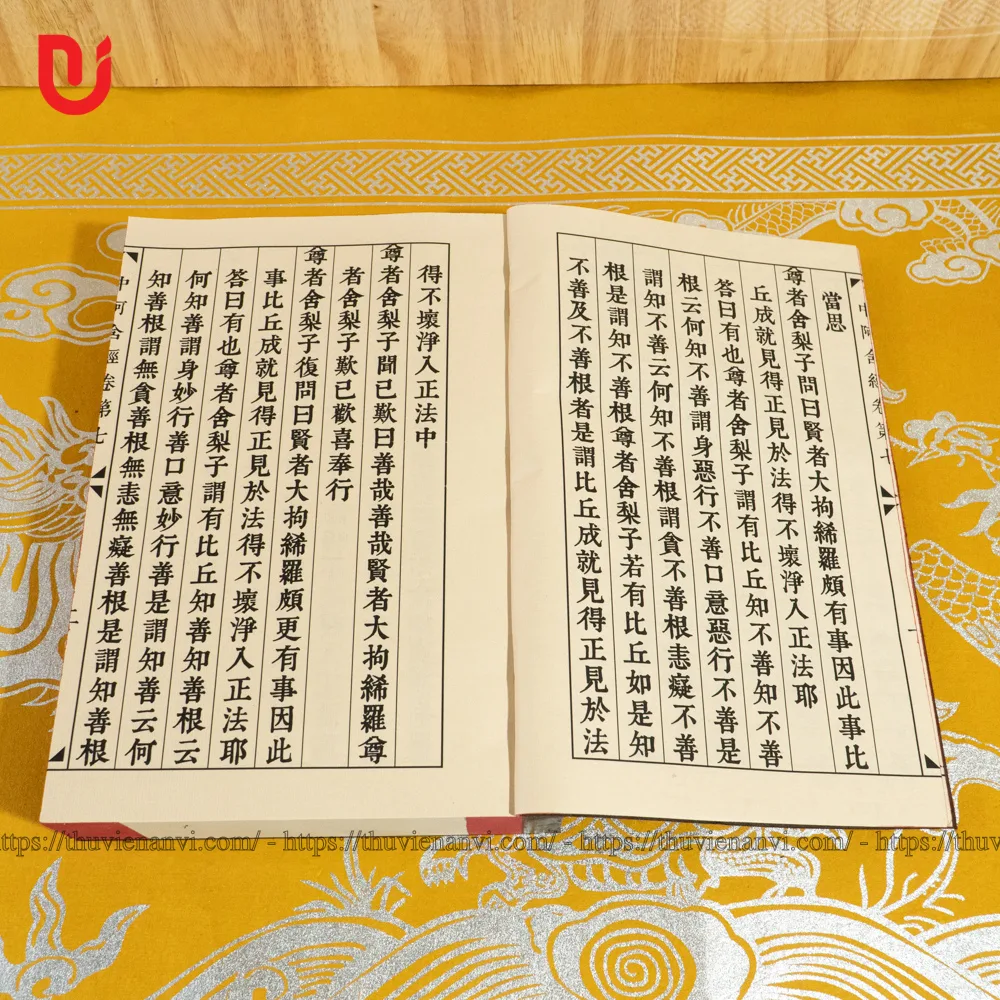 中阿含經卷第七
一
當思
尊者舍梨子問曰賢者大拘絺羅頗有事因此事比
丘成就見得正見於法得不壞淨入正法耶
答曰有也尊者舍梨子謂有比丘知不善知不善
根云何知不善謂身惡行不善口意惡行不善是
謂知不善云何知不善根謂貪不善根恚癡不善
根是謂知不善根尊者舍梨子若有比丘如是知
不善及不善根者是謂比丘成就見得正見於法
得不壞淨入正法中
尊者舍梨子聞已歎曰善哉善哉賢者大拘絺羅尊
者舍梨子歎已歡喜奉行
尊者舍梨子復問曰賢者大拘絺羅頗更有事因此
事比丘成就見得正見於法得不壞淨入正法耶
答曰有也尊者舍梨子謂有比丘知善知善根云
何知善謂身妙行善口意妙行善是謂知善云何
知善根謂無貪善根無恚無癡善根是謂知善根
中阿含經卷第七
https://thuvienanvi.com/ - https://thuvienanvi.com/ - https://thuvienanvi.com/ - https://thuvien